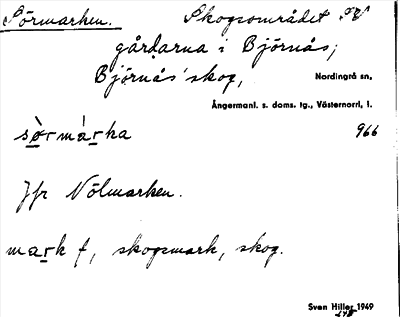 Sörmarken. Skogsområdet SV
gårdarna i Björnås;
Björnås' skog,
Nordingrå sn,
Ångermanl. s. doms. tg., Västernorrl. l.
sòrmàrka 966
Jfr Nölmarken.
mark f, skogsmark, skog.
Sven Hiller 1949